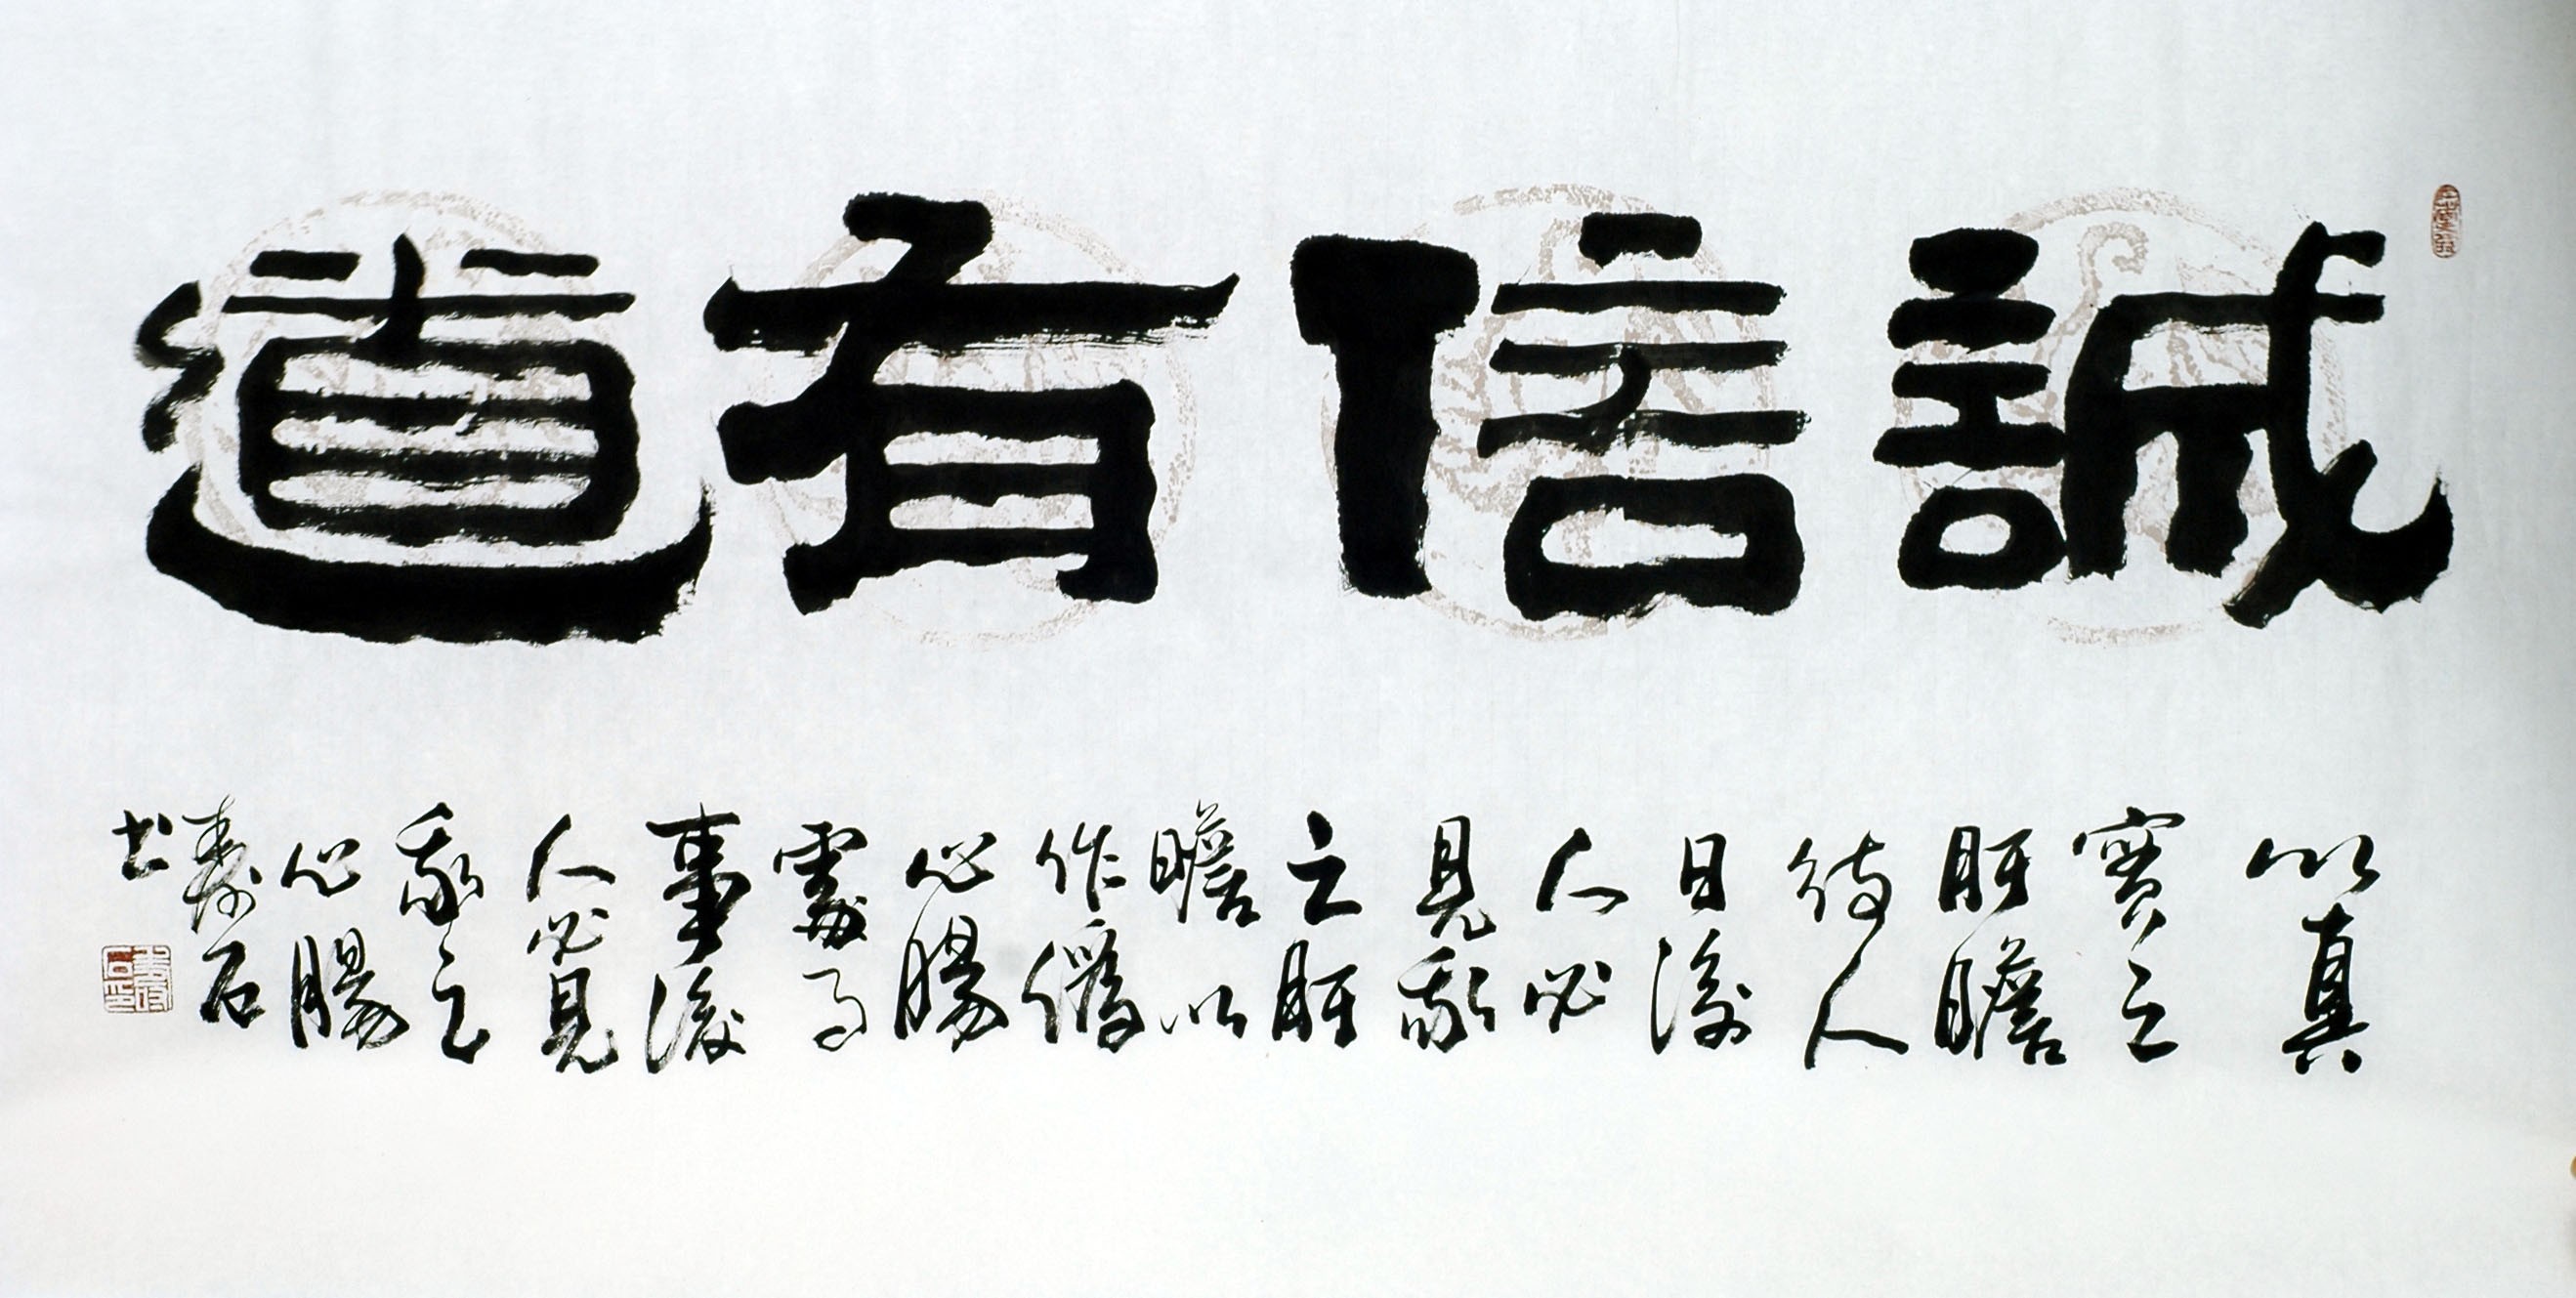 誠信有道
以真
實之
肝膽
待人
日後
人必
見我
之肝
膽以
作偽
心腸
處事
事後
人必見
我之
心腸
壽石
书